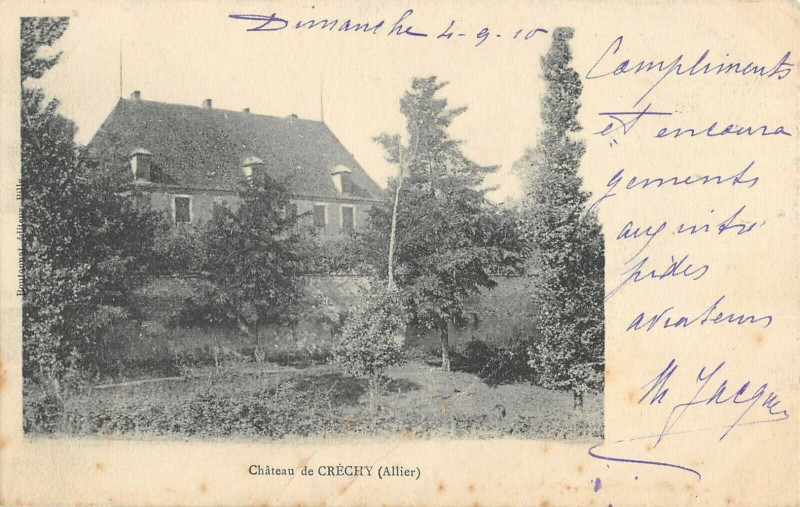 Dimanche 4-9-10
Compliments
et encoura
gements
aux intré
pides
aviateurs
Jacques
Château de CRÉCHY (Allier)